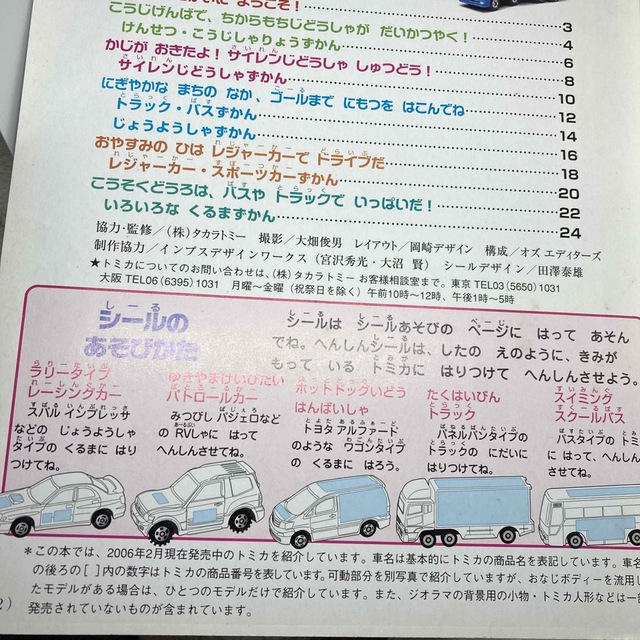 ようこそ!
3
こうじげんばで、ちからもちじどうしゃが だいかつやく! 4
けんせつ・こうじしゃりょうずかん 6
かじが おきたよ! サイレンじどうしゃ しゅつどう! 8
サイレンじどうしゃずかん 10
にぎやかな まちの なか、ゴールまで にもつを はこんでね 12
トラック・バスずかん 14
じょうようしゃずかん 16
おやすみの ひは レジャーカーで ドライブだ 18
レジャーカー・スポーツカーずかん 20
こうそくどうろは、バスや トラックで いっぱいだ! 22
いろいろな くるまずかん 24
協力・監修/(株)タカラトミー 撮影/大畑俊男 レイアウト/岡崎デザイン 構成/オズ エディターズ
制作協力/インプスデザインワークス(宮沢秀光・大沼 賢) シールデザイン/田澤泰雄
★トミカについてのお問い合わせは、(株)タカラトミー お客様相談室まで。東京 TEL03(5650)1031
大阪 TEL06(6395)1031 月曜~金曜(祝祭日を除く)午前10時~12時、午後1時~5時
シールの
あそびかた
シールは シールあそびの ページに はって あそん
でね。へんしんシールは、したの えのように、きみが
もって いる トミカに はりつけて へんしんさせよう。
ラリータイプ
レーシングカー
スバル インプレッサ
などの じょうようしゃ
タイプの くるまに はり
つけてね。
ゆきやまけいびたい
パトロールカー
みつびし パジェロなど
の RVしゃに はって
へんしんさせてね。
ホットドックいどう
はんばいしゃ
トヨタ アルファード
のような ワゴンタイプ
の くるまに はろう。
たくはいびん
トラック
パネルバンタイプの
トラックの にだいに
はりつけてね。
スイミング
スクールバス
バスタイプの トミ
に はって、へんしん
させてね。
*この本では、2006年2月現在発売中のトミカを紹介しています。車名は基本的にトミカの商品名を表記しています。車名
の後ろの[ ]内の数字はトミカの商品番号を表しています。可動部分を別写真で紹介していますが、おなじボディーを流用し
たモデルがある場合は、ひとつのモデルだけで紹介しています。また、ジオラマの背景用の小物・トミカ人形などは一部
発売されていないものが含まれています。
2)